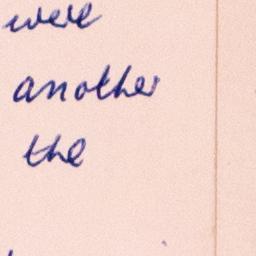 were
another
the